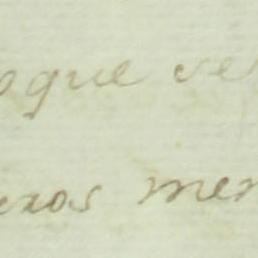 oque ve
exos men